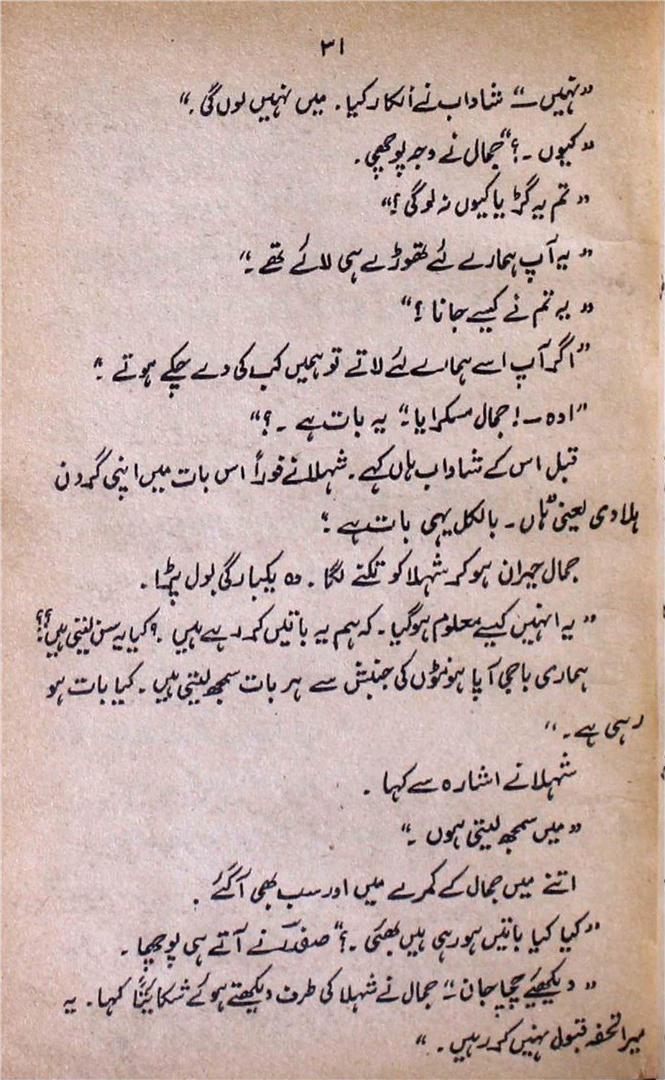 ۳۱
”نہیں۔“ شاداب نے انکار کیا۔ میں نہیں لوں گی۔“
”کیوں۔؟“ جمال نے وجہ پوچھی۔
”تم یہ گڑیا کیوں نہ لو گی؟“
”یہ آپ ہمارے لئے تھوڑے ہی لائے تھے۔“
”یہ تم نے کیسے جانا؟“
”اگر آپ اسے ہمارے لئے لاتے تو ہمیں کب کی دے چکے ہوتے۔“
”اوہ۔! جمال مسکرایا“ یہ بات ہے۔؟“
قبل اس کے شاداب ہاں کہے۔ شہلا نے فوراً اس بات میں اپنی گردن
ہلا دی یعنی ”ہاں۔ بالکل یہی بات ہے“
جمال حیران ہو کر شہلا کو تکنے لگا۔ وہ یکبارگی بول پڑا۔
”یہ انہیں کیسے معلوم ہو گیا۔ کہ ہم یہ باتیں کر رہے ہیں۔؟ کیا یہ سن لیتی ہیں؟“
ہماری باجی آپا ہونٹوں کی جنبش سے ہر بات سمجھ لیتی ہیں۔ کیا بات ہو
رہی ہے۔“
شہلا نے اشارہ سے کہا۔
”میں سمجھ لیتی ہوں۔“
اتنے میں جمال کے کمرے میں اور سب بھی آ گئے۔
”کیا کیا باتیں ہو رہی ہیں بھئی۔؟“ صفدر نے آتے ہی پوچھا۔
”دیکھئے چچا جان۔“ جمال نے شہلا کی طرف دیکھتے ہوئے شکایتاً کہا۔ یہ
میرا تحفہ قبول نہیں کر رہیں۔“